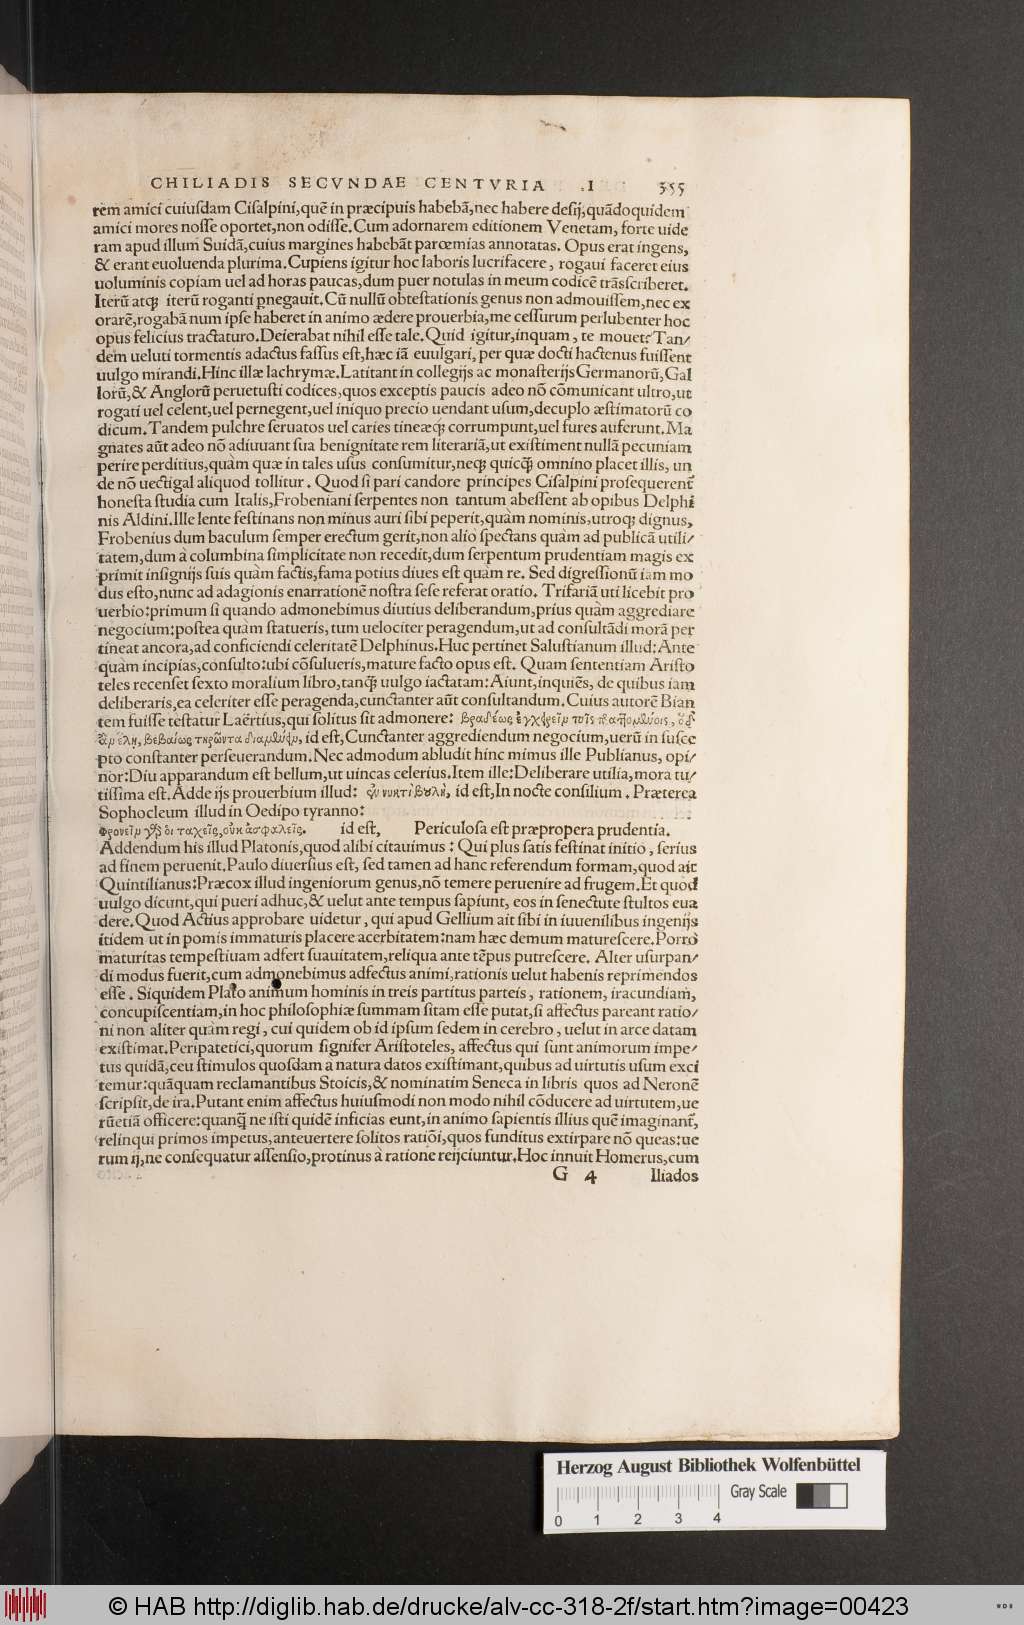 CHILIADIS SECVNDAE CENTVRIA .I 355
rem amici cuiuſdam Ciſalpini,quē in præcipuis habebā,nec habere deſij,quādoquidem
amici mores noſſe oportet,non odiſſe.Cum adornarem editionem Venetam, forte uide
ram apud illum Suidā,cuius margines habebāt parœmias annotatas. Opus erat ingens,
& erant euoluenda plurima.Cupiens igitur hoc laboris lucrifacere, rogaui faceret eius
uoluminis copiam uel ad horas paucas,dum puer notulas in meum codicē trāſcriberet.
Iterū atq; iterū roganti ꝑnegauit.Cū nullū obteſtationis genus non admouiſſem,nec ex
orarē,rogabā num ipſe haberet in animo ædere prouerbia,me ceſſurum perlubenter hoc
opus felicius tractaturo.Deierabat nihil eſſe tale.Quid igitur,inquam, te mouet? Tan/
dem ueluti tormentis adactus faſſus eſt,hæc iā euulgari, per quæ docti hactenus fuiſſent
uulgo mirandi.Hinc illæ lachrymæ.Latitant in collegijs ac monaſterijs Germanorū,Gal
lorū,& Anglorū peruetuſti codices,quos exceptis paucis adeo nō cōmunicant ultro,ut
rogati uel celent,uel pernegent,uel iniquo precio uendant uſum,decuplo æſtimatorū co
dicum.Tandem pulchre ſeruatos uel caries tineæq; corrumpunt,uel fures auferunt.Ma
gnates aūt adeo nō adiuuant ſua benignitate rem literariā,ut exiſtiment nullā pecuniam
perire perditius,quàm quæ in tales uſus conſumitur,neq; quicq̄ omnino placet illis, un
de nō uectigal aliquod tollitur. Quod ſi pari candore principes Ciſalpini proſequerent̄
honeſta ſtudia cum Italis,Frobeniani ſerpentes non tantum abeſſent ab opibus Delphi
nis Aldini.Ille lente feſtinans non minus auri ſibi peperit,quàm nominis,utroq; dignus,
Frobenius dum baculum ſemper erectum gerit,non aliò ſpectans quàm ad publicā utili/
tatem,dum à columbina ſimplicitate non recedit,dum ſerpentum prudentiam magis ex
primit inſignijs ſuis quàm factis,fama potius diues eſt quàm re. Sed digreſſionū iam mo
dus eſto,nunc ad adagionis enarrationē noſtra ſeſe referat oratio. Trifariā uti licebit pro
uerbio:primum ſi quando admonebimus diutius deliberandum,prius quàm aggrediare
negocium:poſtea quàm ſtatueris,tum uelociter peragendum,ut ad conſultādi morā per
tineat ancora,ad conficiendi celeritatē Delphinus.Huc pertinet Saluſtianum illud: Ante
quàm incipias,conſulto:ubi cōſulueris,mature facto opus eſt. Quam ſententiam Ariſto
teles recenſet ſexto moralium libro,tanq̄ uulgo iactatam: Aiunt,inquiēs, de quibus iam
deliberaris,ea celeriter eſſe peragenda,cunctanter aūt conſultandum.Cuius autorē Bian
tem fuiſſe teſtatur Laërtius,qui ſolitus ſit admonere: βραδέως ἐγχειρεῖν τοῖς πραττομένοις, ὃ δ'
ἂν ἕλῃ, βεβαίως τηρῶντα διαμένειν, id eſt,Cunctanter aggrediendum negocium,uerū in ſuſce
pto conſtanter perſeuerandum.Nec admodum abludit hinc mimus ille Publianus, opi/
nor:Diu apparandum eſt bellum,ut uincas celerius.Item ille:Deliberare utilia,mora tu/
tiſſima eſt.Adde ijs prouerbium illud: ἐν νυκτὶ βουλή, id eſt,In nocte conſilium. Præterea
Sophocleum illud in Oedipo tyranno:
Φρονεῖν γὰρ οἱ ταχεῖς,οὐκ ἀσφαλεῖς. id eſt, Periculoſa eſt præpropera prudentia.
Addendum his illud Platonis,quod alibi citauimus: Qui plus ſatis feſtinat initio, ſerius
ad finem peruenit.Paulo diuerſius eſt, ſed tamen ad hanc referendum formam,quod ait
Quintilianus:Præcox illud ingeniorum genus,nō temere peruenire ad frugem.Et quod
uulgo dicunt,qui pueri adhuc,& uelut ante tempus ſapiunt, eos in ſenectute ſtultos eua
dere.Quod Actius approbare uidetur, qui apud Gellium ait ſibi in iuuenilibus ingenijs
itidem ut in pomis immaturis placere acerbitatem:nam hæc demum matureſcere.Porrò
maturitas tempeſtiuam adfert ſuauitatem,reliqua ante tēpus putreſcere. Alter uſurpan/
di modus fuerit,cum admonebimus adfectus animi,rationis uelut habenis reprimendos
eſſe. Siquidem Plato animum hominis in treis partitus parteis, rationem, iracundiam,
concupiſcentiam,in hoc philoſophiæ ſummam ſitam eſſe putat,ſi affectus pareant ratio/
ni non aliter quàm regi, cui quidem ob id ipſum ſedem in cerebro, uelut in arce datam
exiſtimat.Peripatetici,quorum ſignifer Ariſtoteles, affectus qui ſunt animorum impe/
tus quidā,ceu ſtimulos quoſdam à natura datos exiſtimant,quibus ad uirtutis uſum exci
temur:quāquam reclamantibus Stoicis,& nominatim Seneca in libris quos ad Neronē
ſcripſit,de ira.Putant enim affectus huiuſmodi non modo nihil cōducere ad uirtutem,ue
rūetiā officere:quanq̄ ne iſti quidē inficias eunt,in animo ſapientis illius quē imaginant̄,
relinqui primos impetus,anteuertere ſolitos ratiōi,quos funditus extirpare nō queas:ue
rum ij,ne conſequatur aſſenſio,protinus à ratione reijciuntur.Hoc innuit Homerus,cum
G 4 Iliados
Herzog August Bibliothek Wolfenbüttel
Gray Scale
0 1 2 3 4
© HAB http://diglib.hab.de/drucke/alv-cc-318-2f/start.htm?image=00423